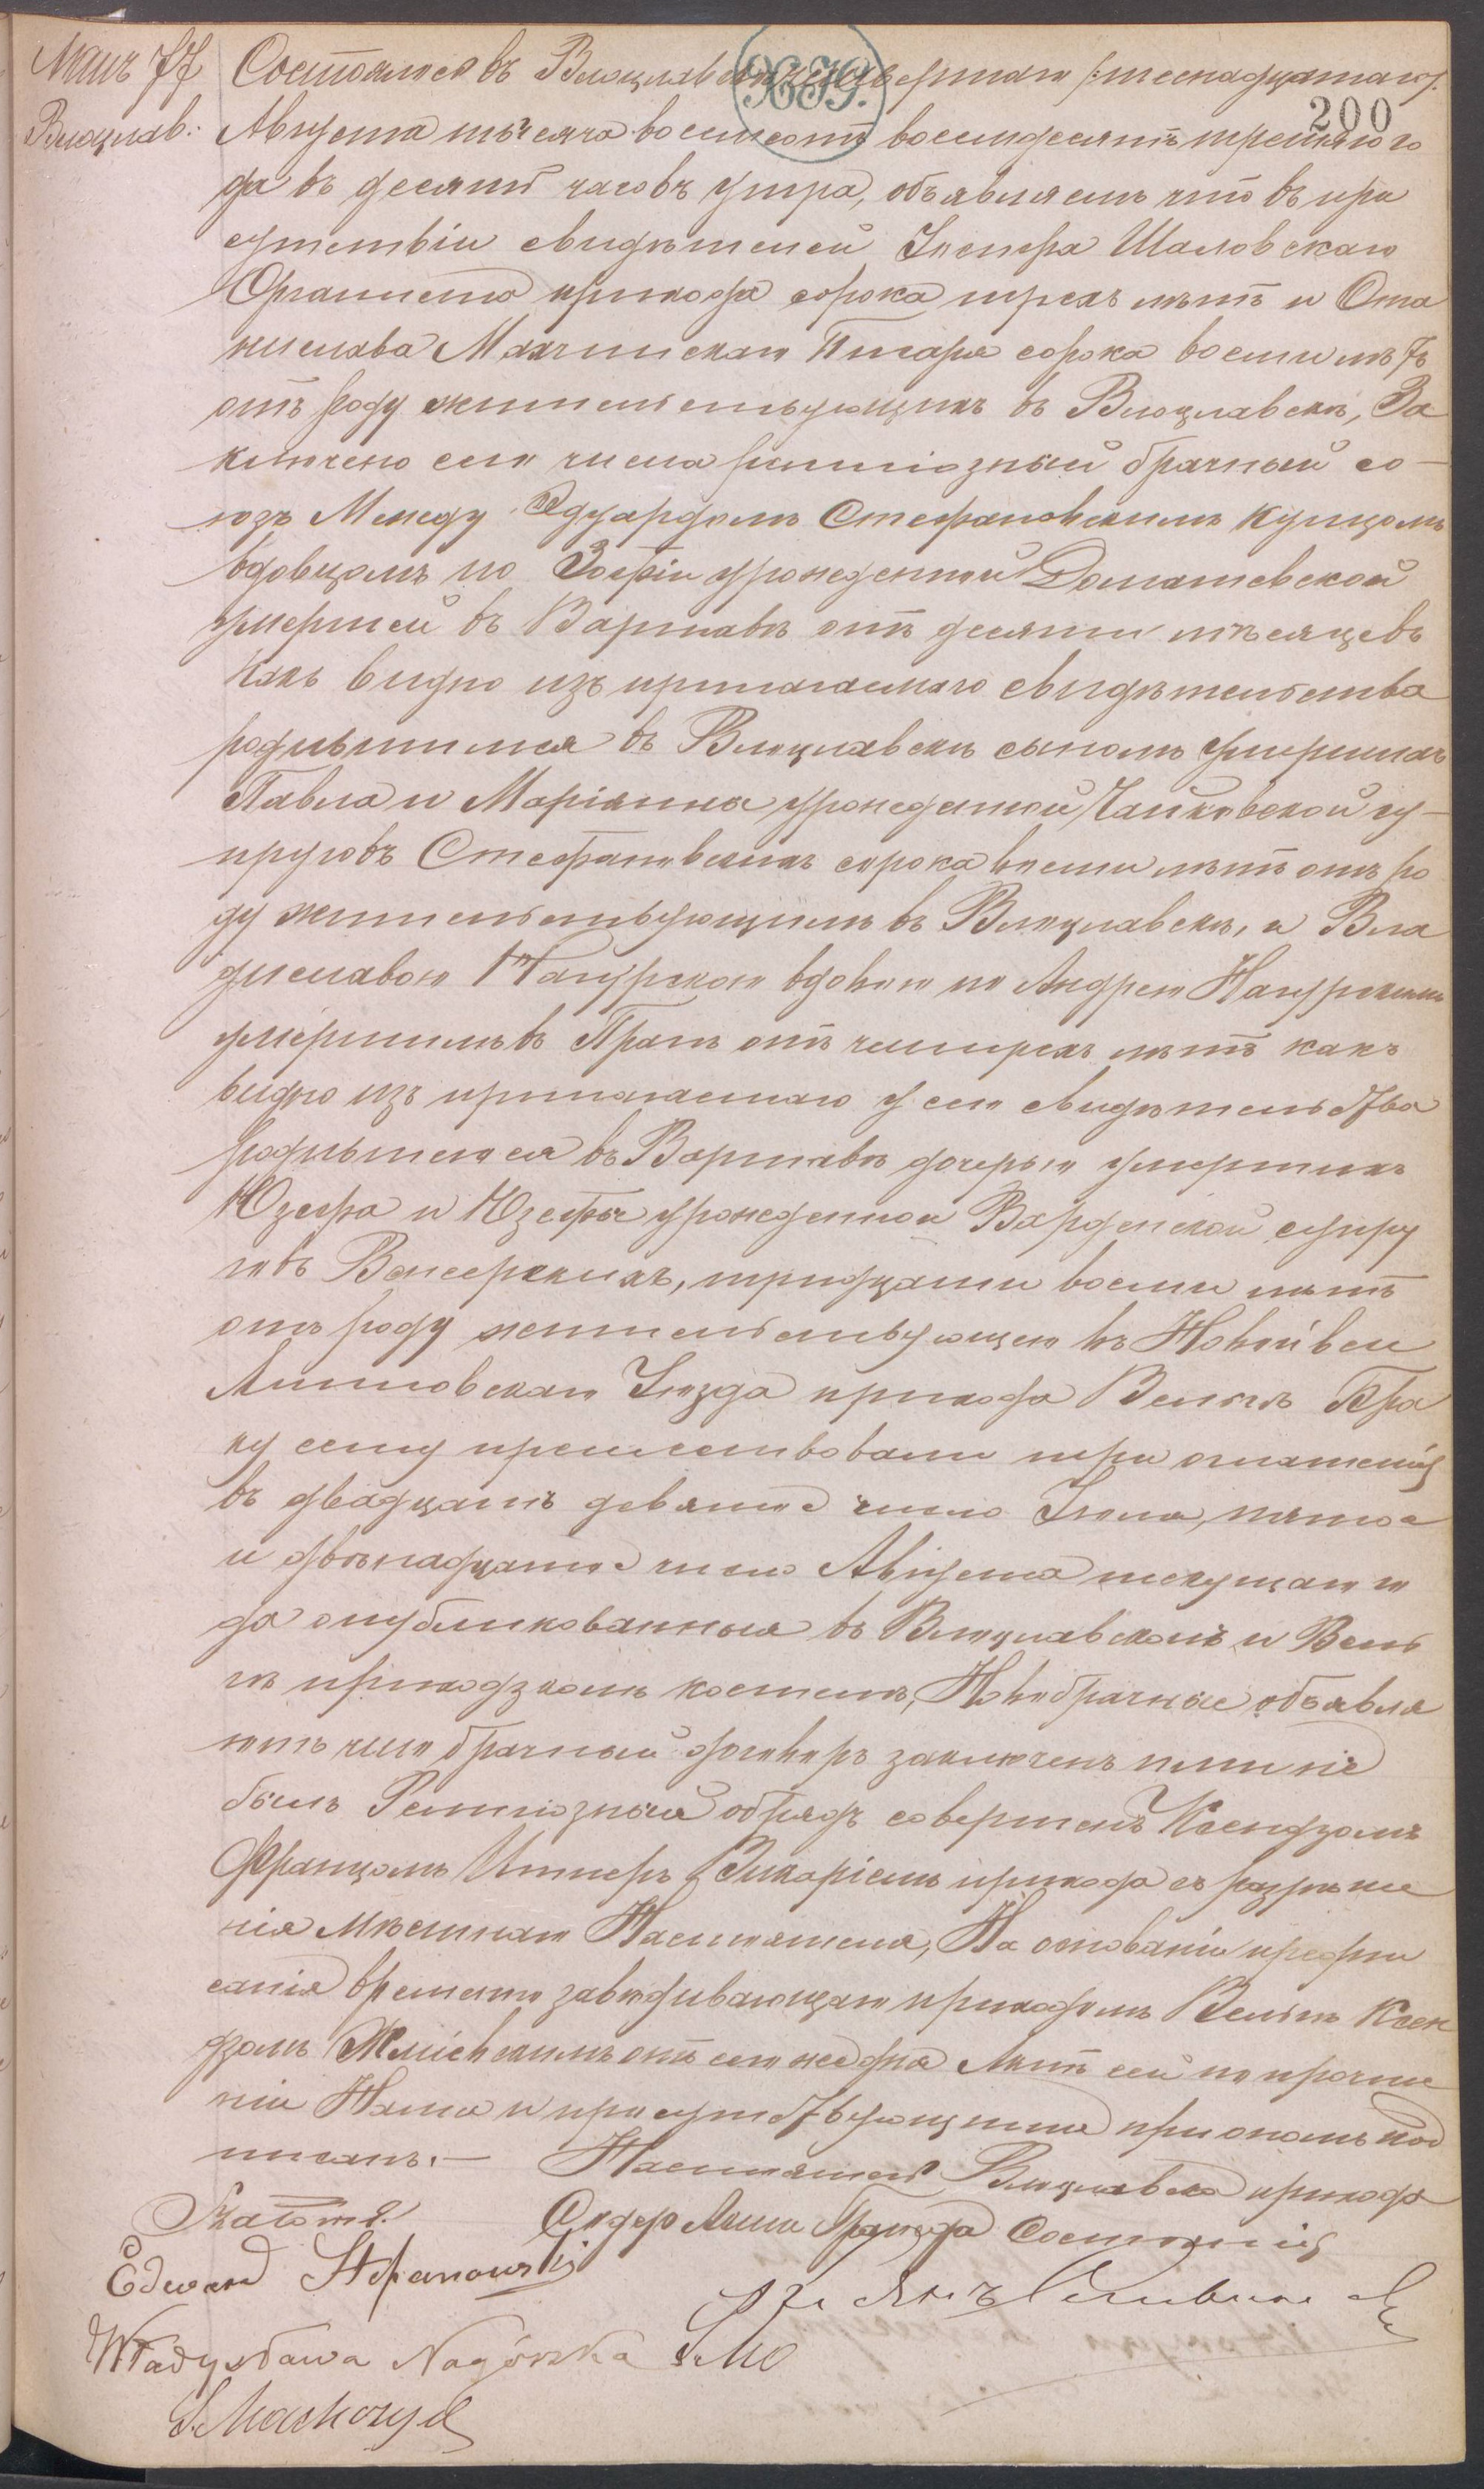 77
Влоцлав:
Состоялось въ Влоцлавске четвертаго /:шеснадцатаго/:
200
Августа тысяча восемсотъ восемдесятъ третьяго го
да въ десять часовъ утра, объявляемъ что въ при
сутствіи свидѣтелей Шаловскаго
Органиста прихода сорока трехъ лѣтъ и Ста
нислава Писаря сорока восми лѣтъ
отъ роду жительствующихъ въ Влоцлавскѣ, За
ключено сего числа религіозный брачный со-
юзъ Между Эдуардомъ Стефановскимъ Купцомъ
вдовцомъ по Зофіи урожденной Домашевской
умершей въ Варшавѣ отъ десяти мѣсяцевъ
какъ видно изъ прилагаемаго свидѣтельства
родившимся въ Влоцлавскѣ сыномъ умершихъ
Павла и Маріанны урожденной Чайковской су-
пруговъ Стефановскихъ сорока восми лѣтъ отъ ро
ду жительствующимъ въ Влоцлавскѣ, и Вла
диславою Нагурскою вдовою по Андрею Нагурскимъ
умершимъ въ Прагѣ отъ четырехъ лѣтъ какъ
видно изъ прилагаемаго у сего свидѣтельства
родившеюся въ Варшавѣ дочерью умершихъ
Юзефа и Юзефы урожденной Варденской супру
говъ тридцати восми лѣтъ
отъ роду жительствующею въ Новой вси
Липновскаго Уѣзда прихода Вельге Бра
ку сему предшествовали три оглашенія
въ двадцать девятое число Іюля, пятое
и двѣнадцатое число Августа текущаго го
да опубликованныя въ Влоцлавскомъ и Вель
ге приходзкомъ костелѣ, Новобрачные объявля
ютъ что брачный договоръ заключенъ ими не
былъ Религіозный обрядъ совершенъ Ксендзомъ
Францомъ Викаріемъ прихода съ разрѣше
нія мѣстнаго Настоятеля, На основаніи предпи
санія временно завѣдывающаго приходомъ Вельге Ксен
дзомъ отъ сего же дня Актъ сей по прочте
ніи Нами и присутствующими при ономъ под
писанъ.— Настоятель Влоцлавскаго прихода
Содер Акты Гражда Состоянія
Edward Stefanowski
Władysława Nagórska